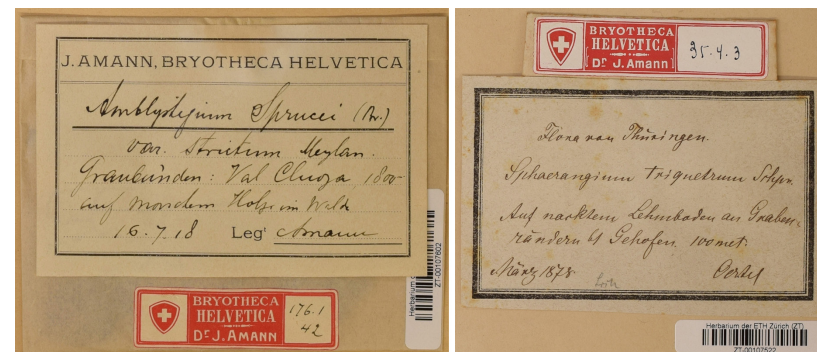 J. AMANN, BRYOTHECA HELVETICA
Amblystegium Sprucei (Br.)
var. strictum Meylan.
Graubünden: Val Cluoza, 1800
auf morschem Holze im Walde
16.7.18 Legᵗ Amann
Herbarium d
ZT-00107602
BRYOTHECA
HELVETICA
Dr J. AMANN
176.1
42
BRYOTHECA
HELVETICA
Dr J. Amann
35.4.3
Flora von Thüringen.
Sphaerangium triquetrum Schpr.
Auf nacktem Lehmboden an Graben-
rändern bei Gehofen. 100 met.
März 1878 Oertel
Herbarium der ETH Zürich (ZT)
ZT-00107522